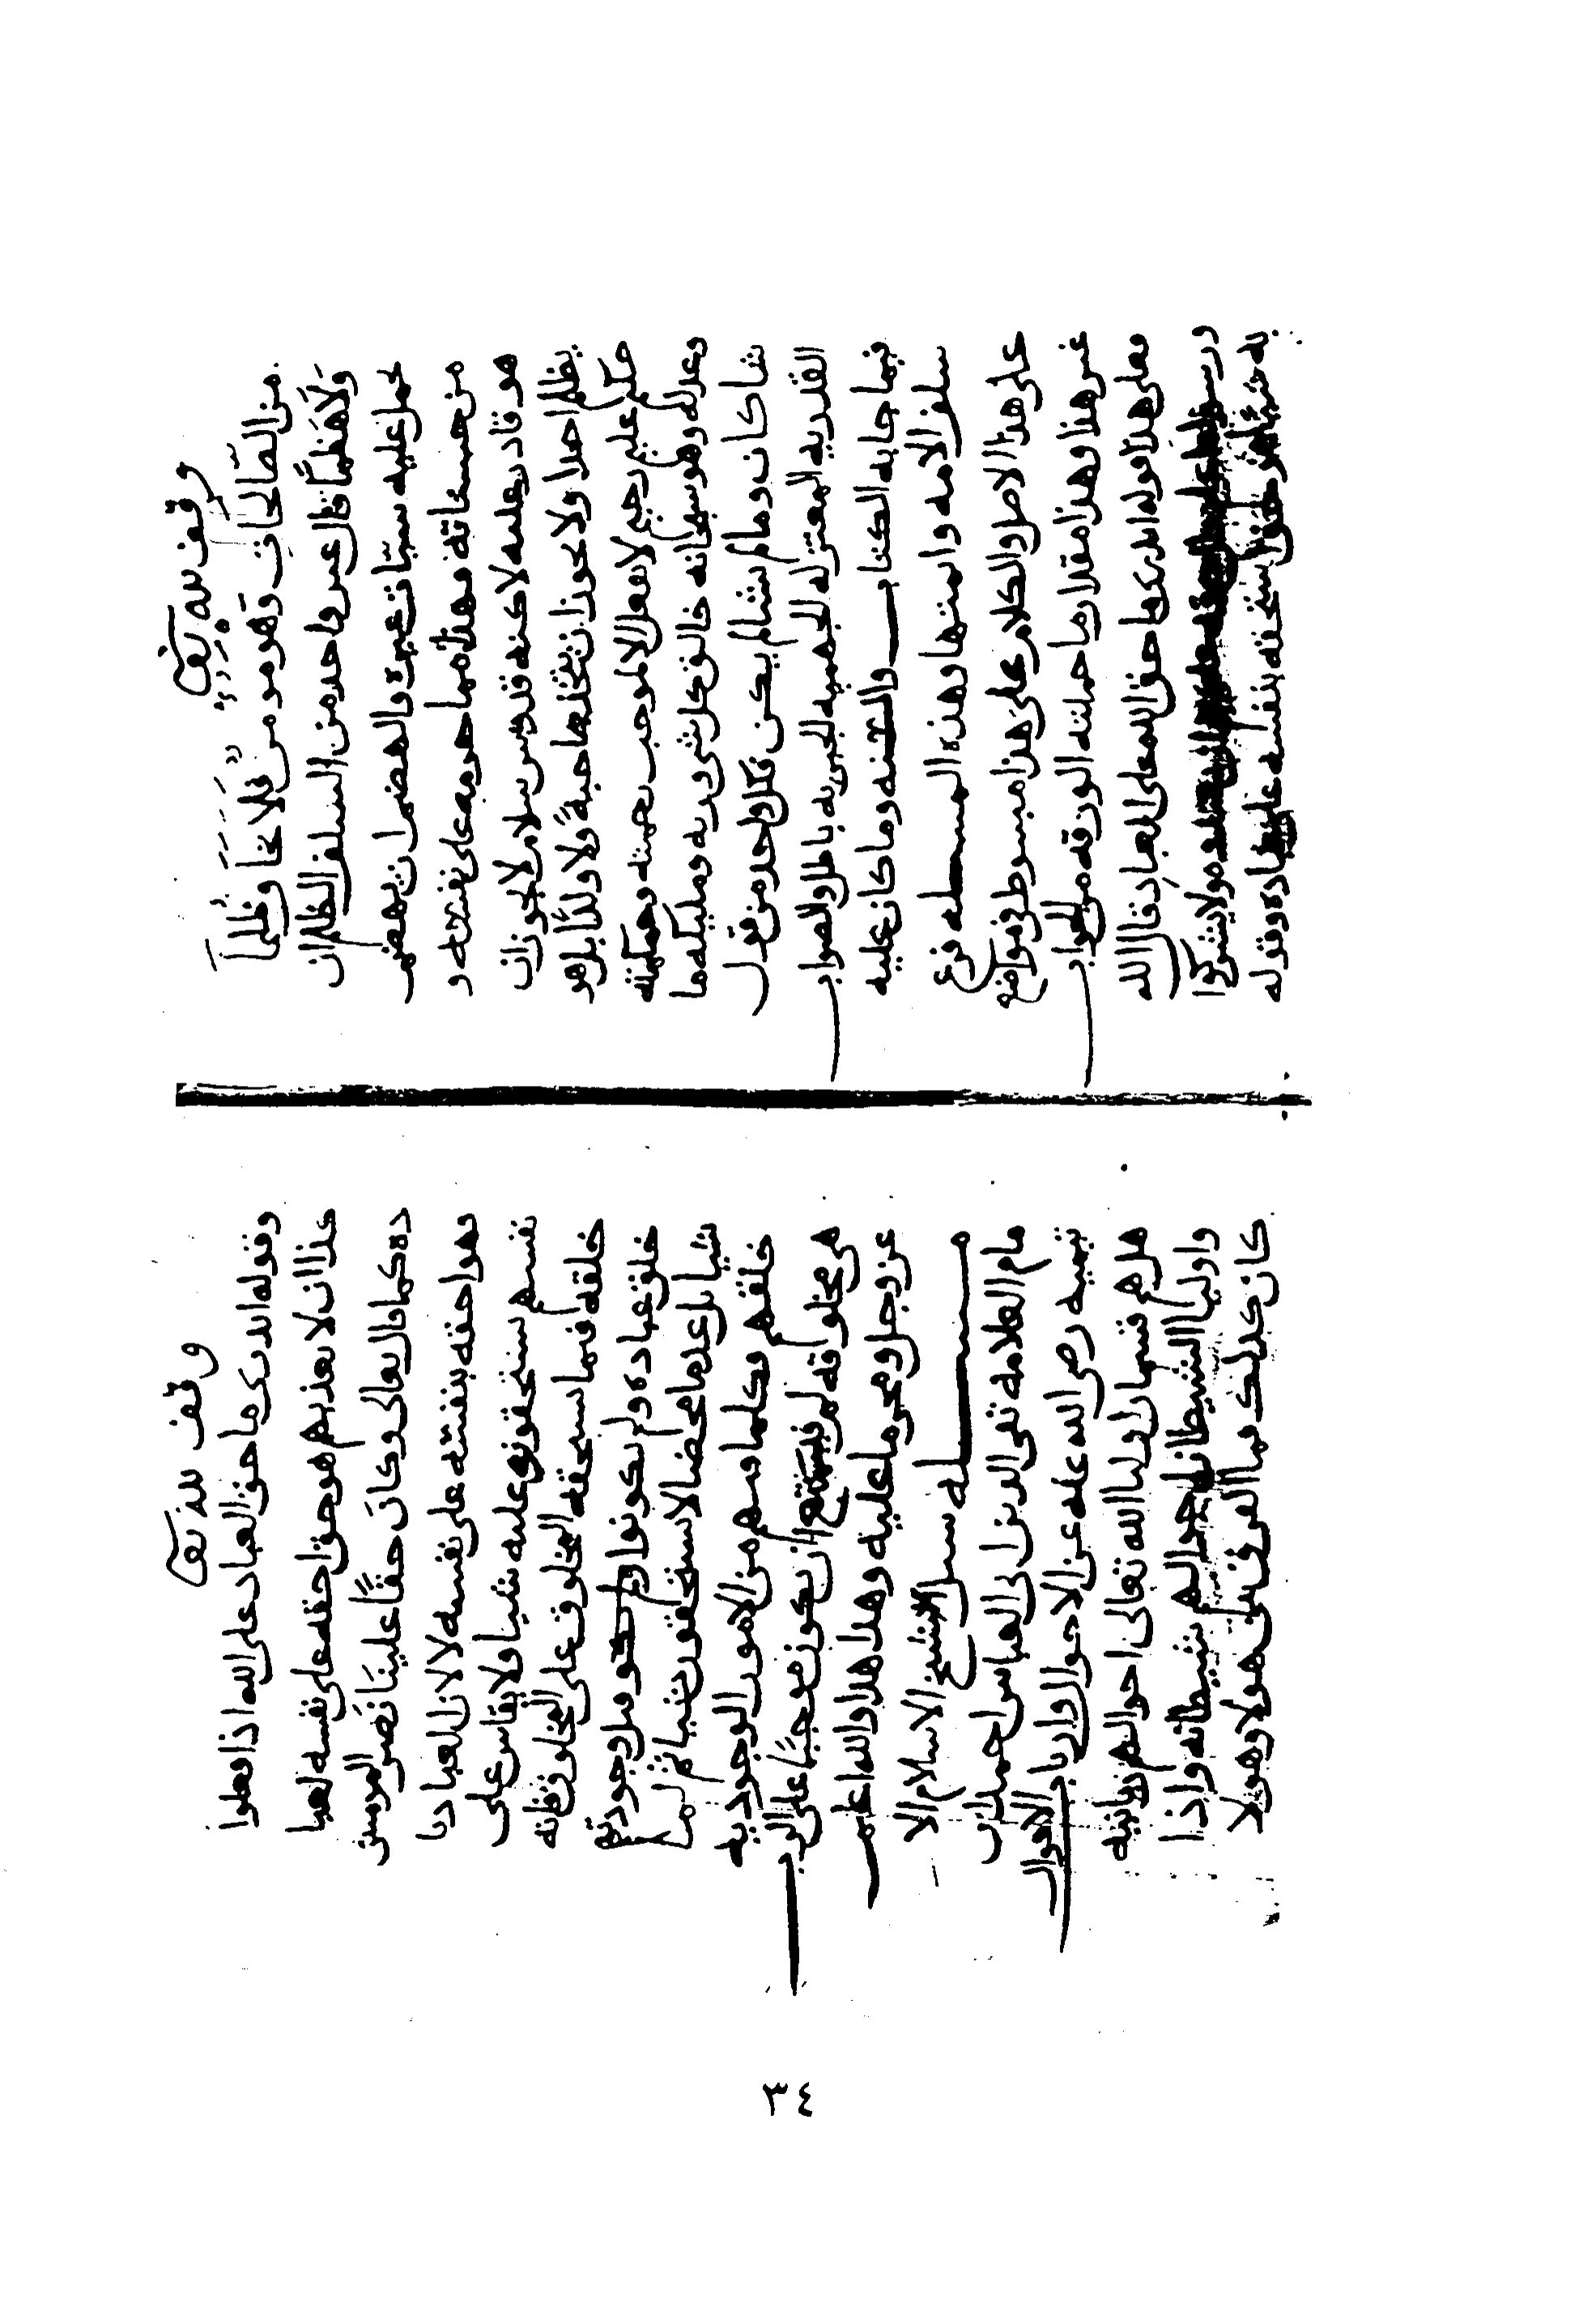 وقف لله تعا
من الصالحات وهو مومن فلا يخاف ظلما
ولا هضما قال غير واحد من السلف الظلم ان
يحمل عليه سيات غيره والهضم ان يهضم
من حسناته فهذا مما حرمه على نفسه و
هو قادر عليه لاكنه قدوس سلام لا يجوز ان
يظلم احدا ولا يجوز ان يتخذ صاحبة ولا ولدا بل هو
حكم عليم رحيم لا يفعل الا لموجب رحمته وحكمته
وعدله وهو سبحانه خالق كل شي وربه ومليكه ما
شا كان وما لم يشا لم يكن فكل واحد من قول
القدريه المعتزله الجهميه الجبريه باطل والصواب
فيما جا به الكتاب والسنه وما كان عليه
سلف الامه وايمتها وهذه المسله فرع
على هذا الاصل والكلام على هذا مبسوط في مواضع
غير هذا وهذا مقدار ما حملته الورقه من الجواب
فعلى هذا قوله اتدري ما حق الله على العباد قال الله
ورسوله اعلم ولا يشركوا
به شيا هو حق يستحقه بنفسه على عباده وقوله
وقف لله تعا
وقوله اتدري ما حق العباد على الله اذا فعلوا
هذا ان لا يعذبهم هو حق احقه على نفسه لعبا
ده كما قال تعالى وكان حقا علينا نصر المومنين
فهو احقه بنفسه على نفسه لا لان العباد با
نفسهم يستحقون عليه شيا ولا يقاس على
خلقه فيما يستحقه المخلوق على المخلوق فانه
خلق عباده ولم يكونوا قبل وجودهم
شيا بل عدما محضا لا يستحقون شيا ثم لما
خلقهم فكلما فيهم من الامور الوجوديه
هي مخلوقه له فيمتنع ان يكون موجبا على الرب
عز وجل ومحرما عليه وهذا هذا والله اعلم
مسله سيل الشيخ الاسلام الا
مام العلامه تقي الدين ابي العباس احمد ابن
تيميه رضي الله عنه عن الاحوال وارباب الاحوال
هل هم قسمان اوليا الله تعالى احوالهم ربانيه
واوليا الشيطان احوالهم شيطانيه واذا
كان كذلك فما الفرق بين هولا وهولا
٣٤